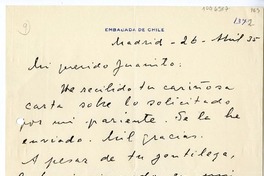 9
1372
EMBAJADA DE CHILE
Madrid - 26 - Abril 35
Mi querido Juanito:
He recibido tu cariñosa
carta sobre lo solicitado
por mi pariente. Se la he
enviado. Mil gracias.
A pesar de tu gentileza,